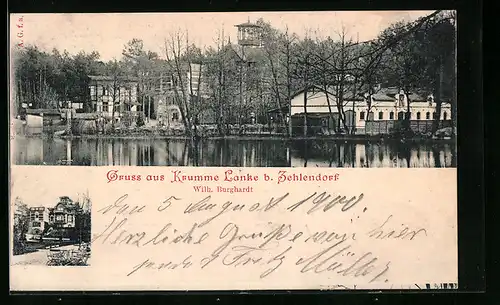 A. G. f. u.
Gruss aus Krumme Lanke b. Zehlendorf
Wilh. Burghardt
den 5 August 1900.
Herzliche Grüße von hier
Fritz Müller